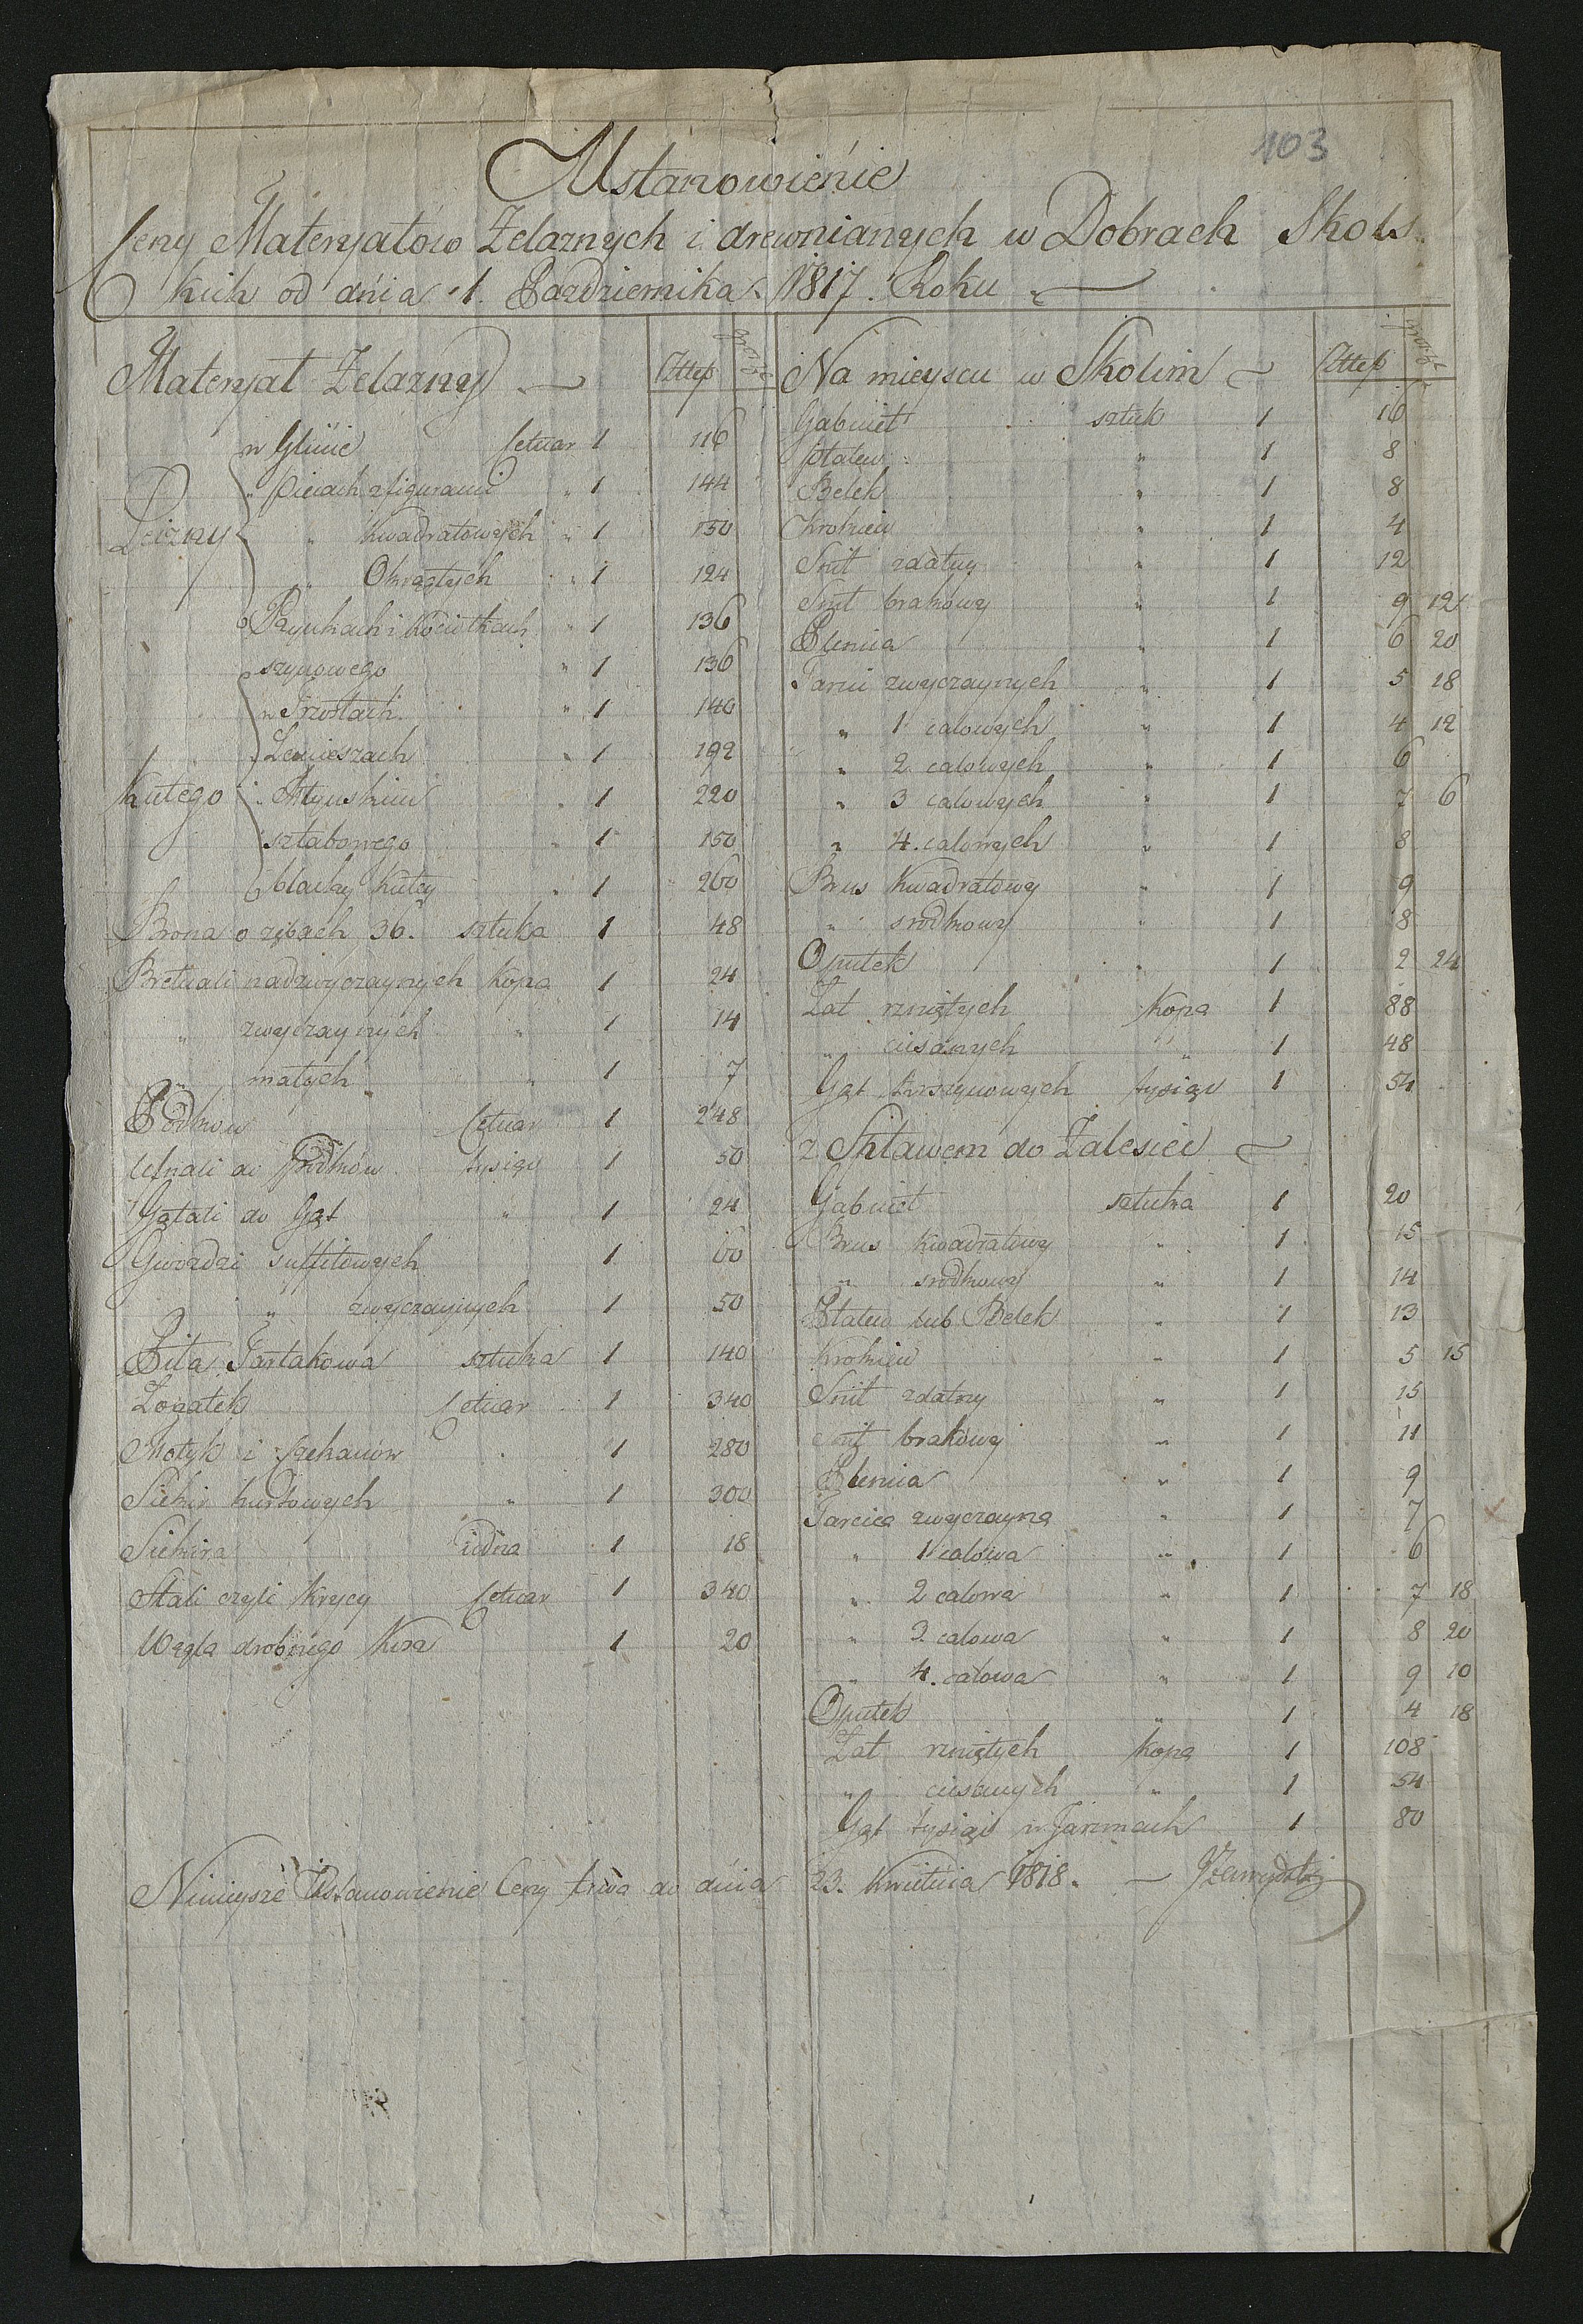 103
Ustanowienie
Ceny Materyałów Żelaznych i drewnianych w Dobrach Skols
kich od dnia 1. Października 1817. Roku
Materyał Żelazny Złtep grosze
w Glinie Cetnar 1 116
" Piecach z figurami " 1 144
Leizny " kwadratowych " 1 150
" Okrągłych " 1 124
Panwkach i Kociołkach " 1 136
szynowego " 1 136
" 1 140
Lemieszach " 1 192
Kutego " 1 220
sztabowego " 1 150
blachy kutey " 1 260
Brona o zębach 36. sztuka 1 48
Bretnali nadzwyczaynych kopa 1 24
" zwyczaynych " 1 14
" małych " 1 7
Podkow Cetnar 1 248
Ufnali do Podków tysiąc 1 50
Gątali do Gąt " 1 24
Gwozdzi suffitowych 1 60
" zwyczaynych 1 50
Piła Tartakowa sztuka 1 140
Łopatek Cetnar 1 340
Motyk i Czekanów " 1 280
Siekir hurtowych " 1 300
Siekira iedna 1 18
Stali czyli Krycy Cetnar 1 340
Węgla drobnego Kosz 1 20
Na mieyscu w Skolim Złtep grosze
Gabinet sztuk 1 16
Płatew " 1 8
Belek " 1 8
Krokiew " 1 4
Snit zdatny " 1 12
Snit brakowy " 1 9 12
Plenica " 1 6 20
Tarcic zwyczaynych " 1 5 18
" 1 calowych " 1 4 12
" 2 calowych " 1 6
" 3 calowych " 1 7 6
" 4. calowych " 1 8
Brus kwadratowy " 1 9
" srodkowy " 1 8
Opułek " 1 2 24
Łat rzniętych kopa 1 88
" ciosanych " 1 48
Gąt tysiąc 1 54
z Spławem do Zalesiec
Gabinet sztuka 1 20
Brus kwadratowy " 1 15
" srodkowy " 1 14
Płatew lub Belek " 1 13
Krokiew " 1 5 15
Snit zdatny " 1 15
Snit brakowy " 1 11
Plenica " 1 9
Tarcica zwyczayna " 1 7
" 1 calowa " 1 6
" 2 calowa " 1 7 18
" 3. calowa " 1 8 20
" 4. calowa " 1 9 10
Opułek " 1 4 18
Łat rzniętych kopa 1 108
" ciosanych " 1 54
Gąt tysiąc w Tarnach 1 80
Ninieysze Ustanowienie Ceny trwa do dnia 23. Kwietnia 1818.